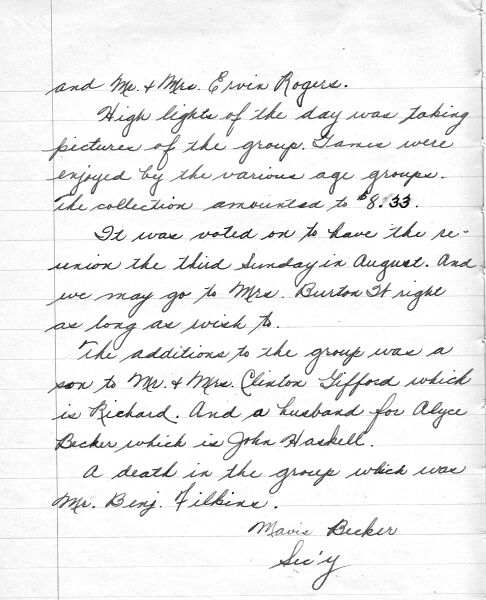 and Mr. & Mrs. Ervin Rogers.
High lights of the day was taking
pictures of the group. Games were
enjoyed by the various age groups.
The collection amounted to $8.33.
It was voted on to have the re-
union the third Sunday in August. And
we may go to Mrs. Burton right
as long as wish to.
The additions to the group was a
son to Mr. & Mrs. Clinton Gifford which
is Richard. And a husband for Alyce
Becker which is John Haskell.
A death in the group which was
Mr. Benj. Filkins.
Mavis Becker
Sec'y